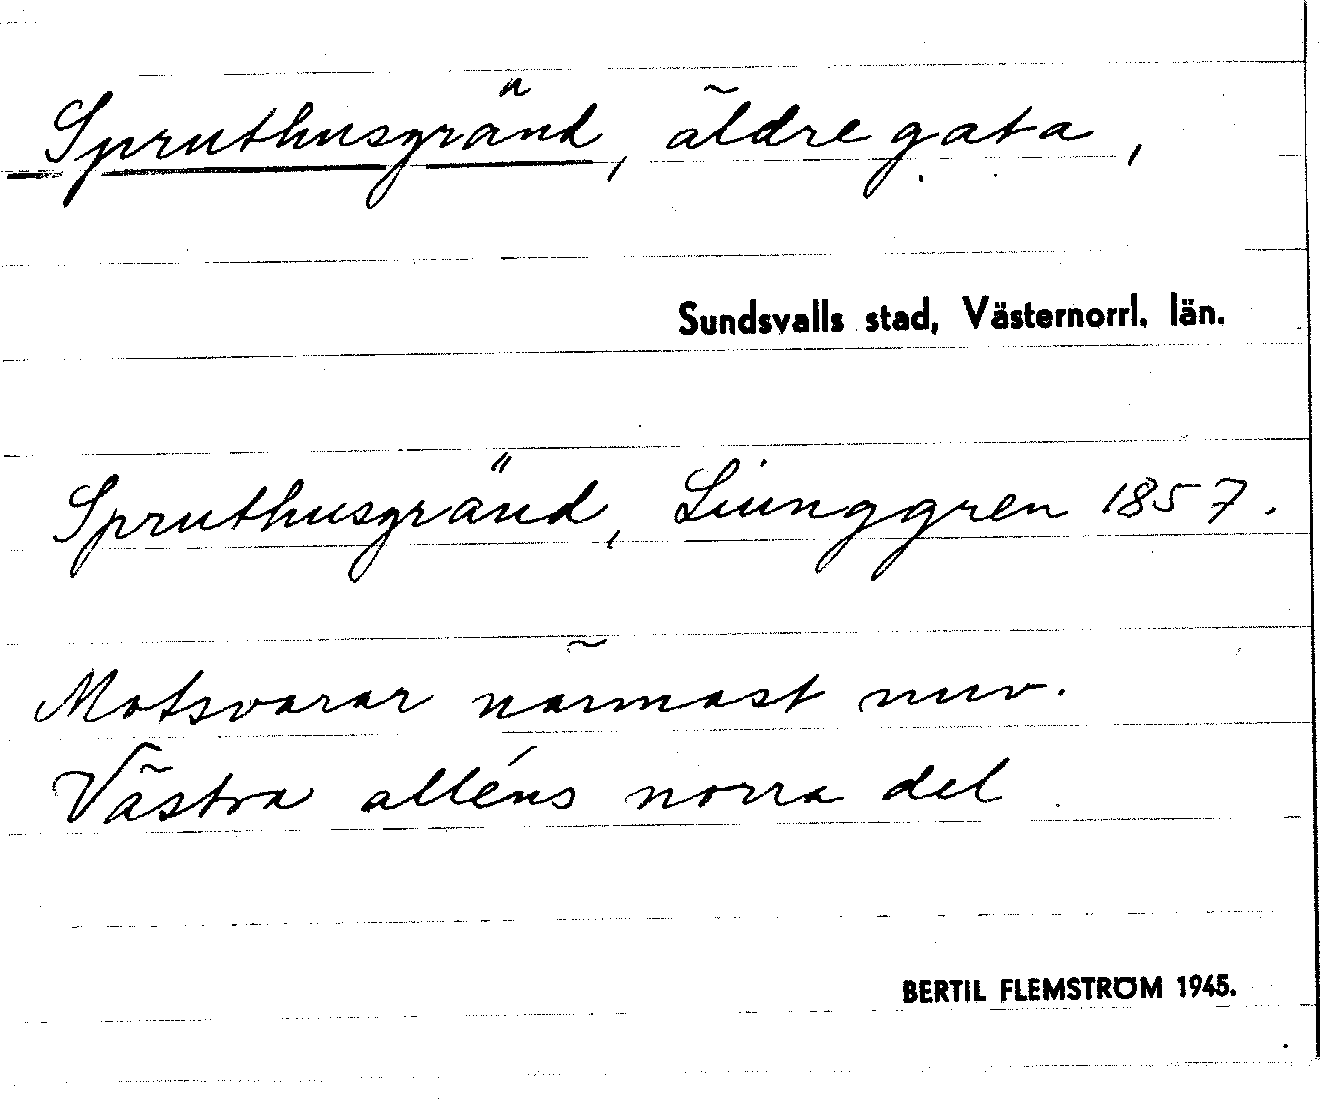 Spruthusgränd, äldre gata,
Sundsvalls stad, Västernorrl. län.
Spruthusgränd, Liunggren 1857.
Motsvarar närmast nuv.
Västra alléns norra del
BERTIL FLEMSTRÖM 1945.